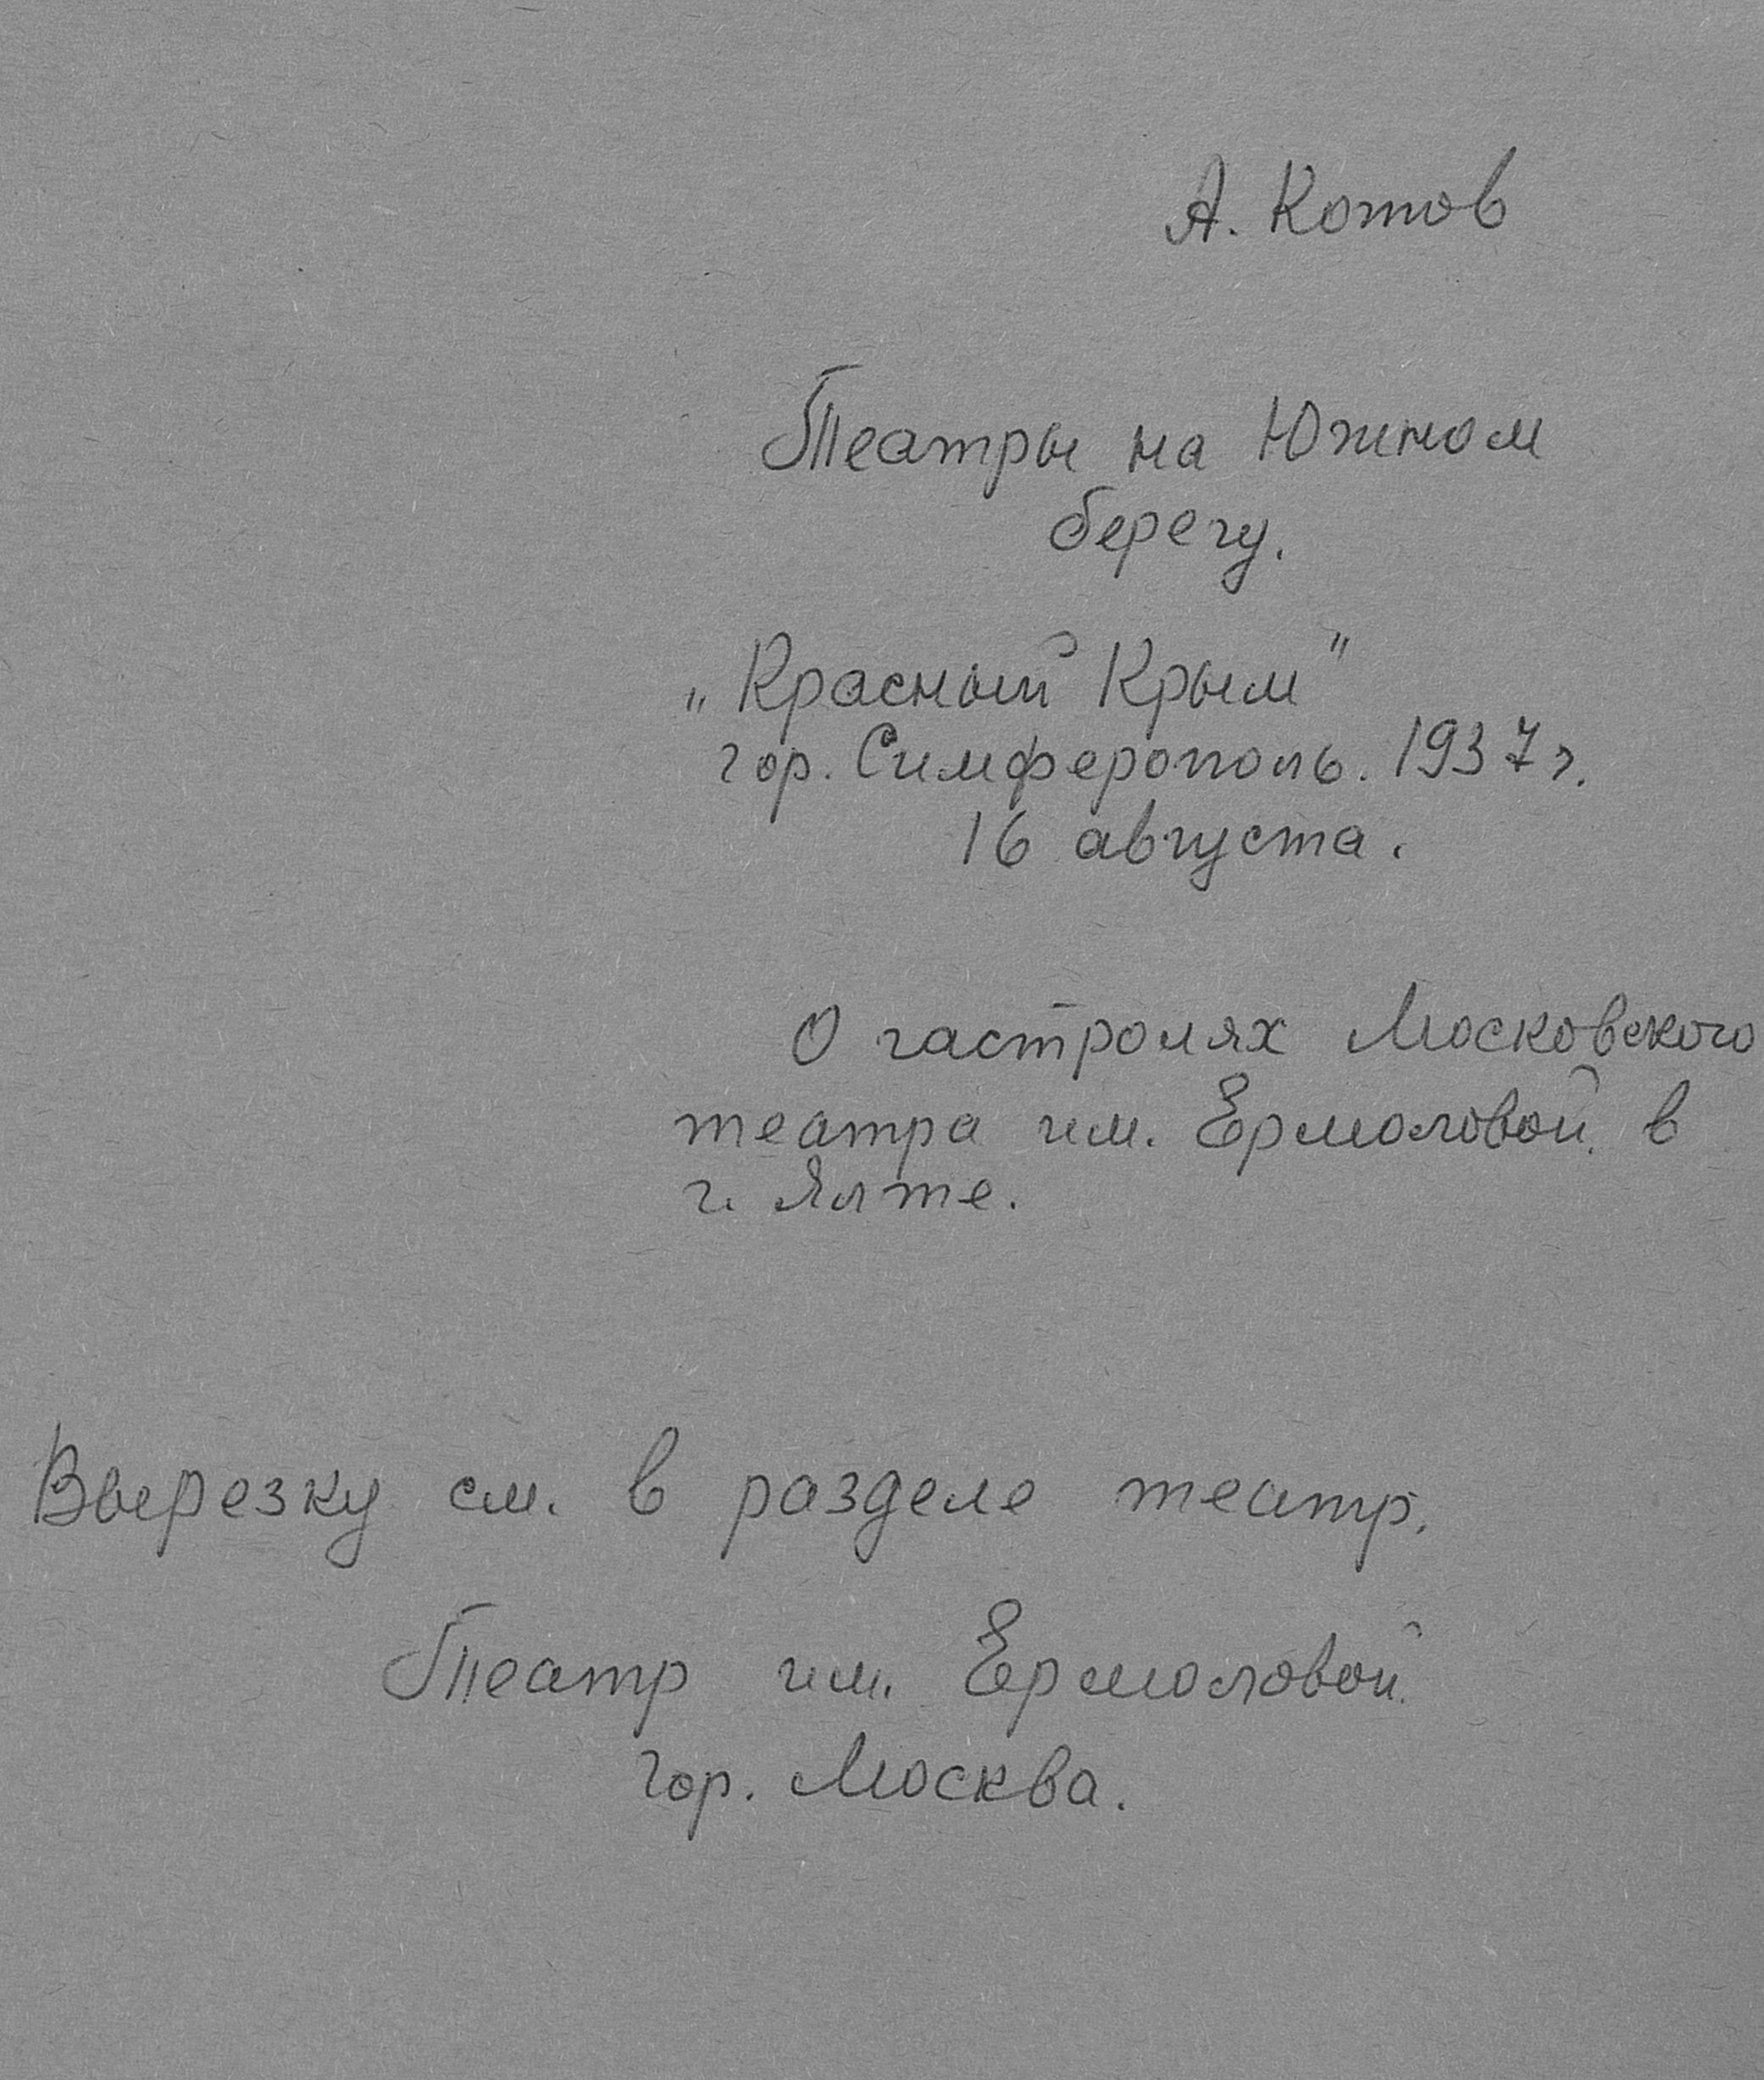 А. Котов
Театры на Южном
берегу.
„Красный Крым"
гор. Симферополь. 1937 г.
16 августа.
О гастролях Московского
театра им. Ермоловой в
г. Ялте.
Вырезку см. в разделе театр.
Театр им. Ермоловой
гор. Москва.